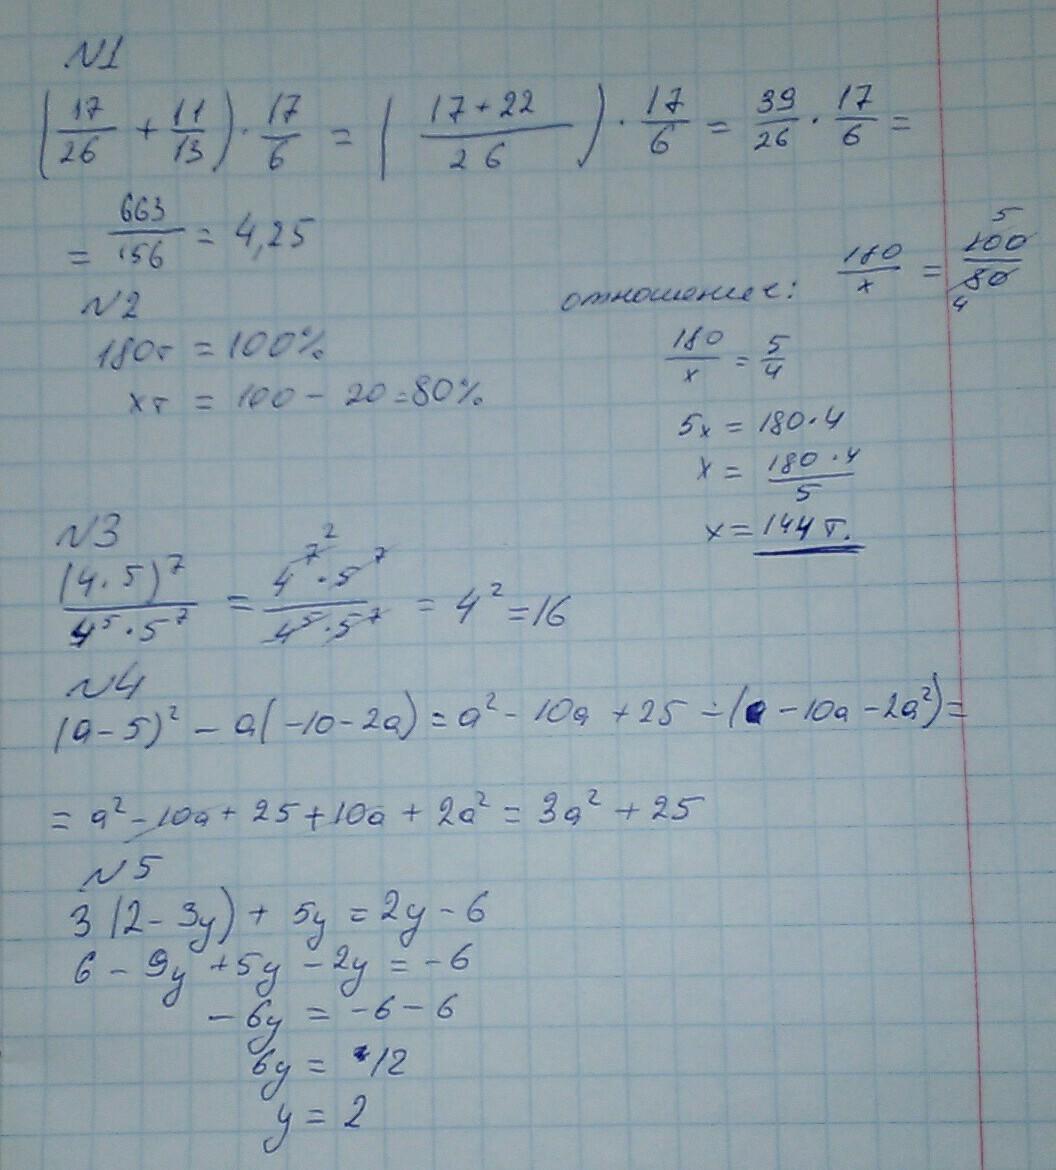 №1
(17/26 + 11/13) · 17/6 = ((17+22)/26) · 17/6 = 39/26 · 17/6 =
= 663/156 = 4,25
№2
180т = 100%
хт = 100 - 20 = 80%
отношение: 180/х = 100/80 5 4
180/х = 5/4
5х = 180·4
х = 180·4/5
х = 144 т.
№3
(4·5)⁷/4⁵·5⁷ = 4⁷ ²·5⁷/4⁵·5⁷ = 4² = 16
№4
(a-5)² - a(-10-2a) = a² - 10a + 25 - (-10a - 2a²) =
= a² - 10a + 25 + 10a + 2a² = 3a² + 25
№5
3(2-3y) + 5y = 2y - 6
6 - 9y + 5y - 2y = -6
-6y = -6 - 6
6y = 12
y = 2